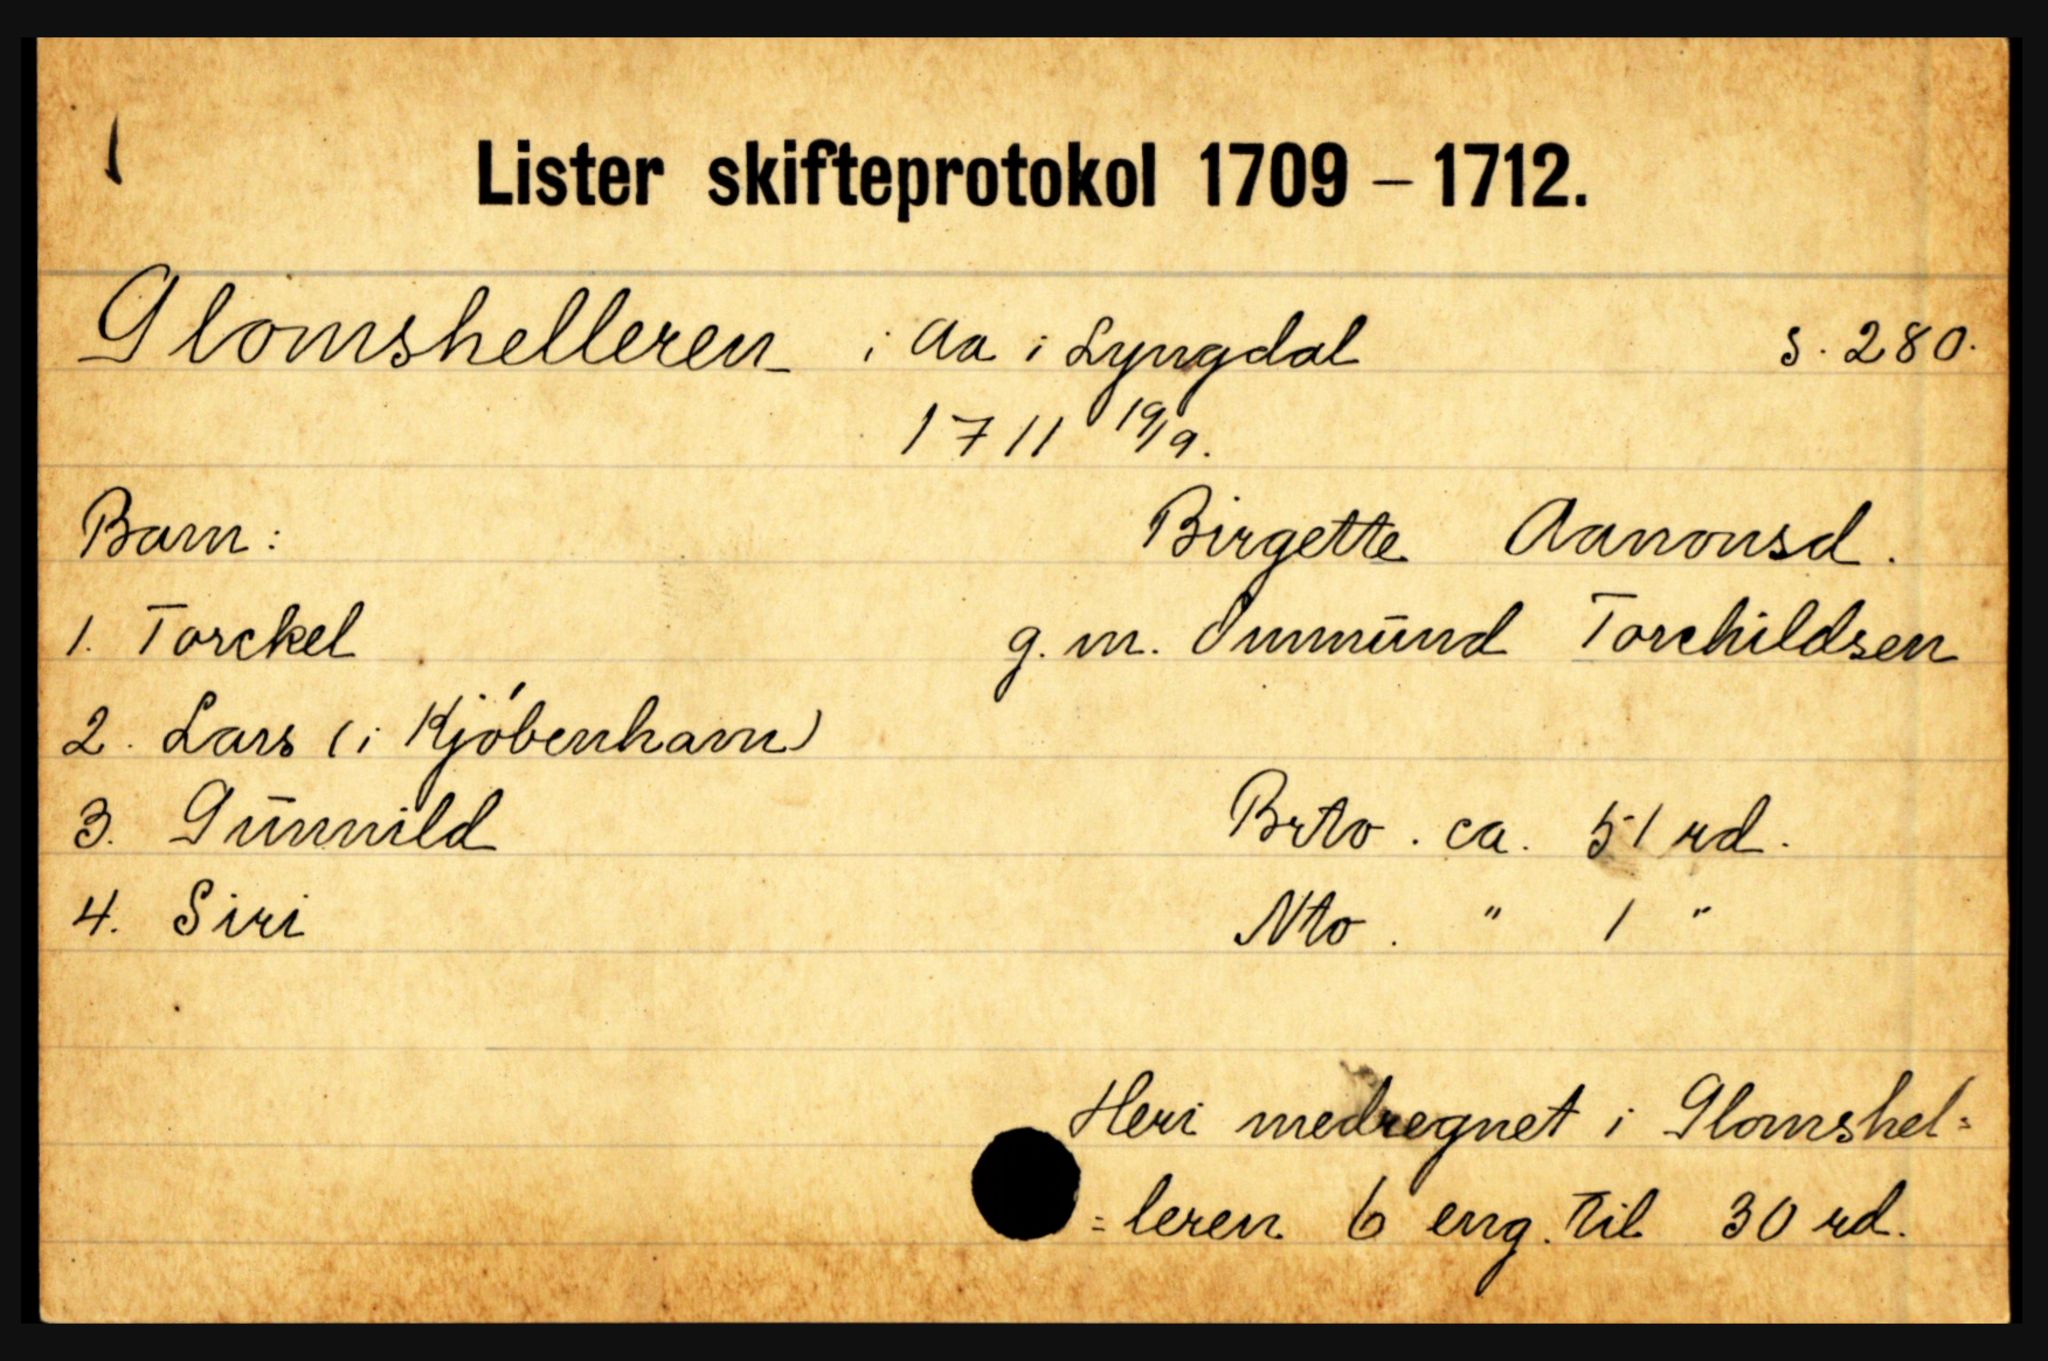 1
Lister skifteprotokol 1709 – 1712.
Glomshelleren i Aa i Lyngdal s. 280.
1711 19/9.
Barn: Birgette Aanonsd.
1. Torckel g. m. Ommund Torchildsen
2. Lars (i Kjóbenhavn)
3. Gunnild Brto. ca. 51 rd.
4. Siri Nto. " 1 "
Heri medregnet i Glomshel=
=leren 6 eng. til 30 rd.